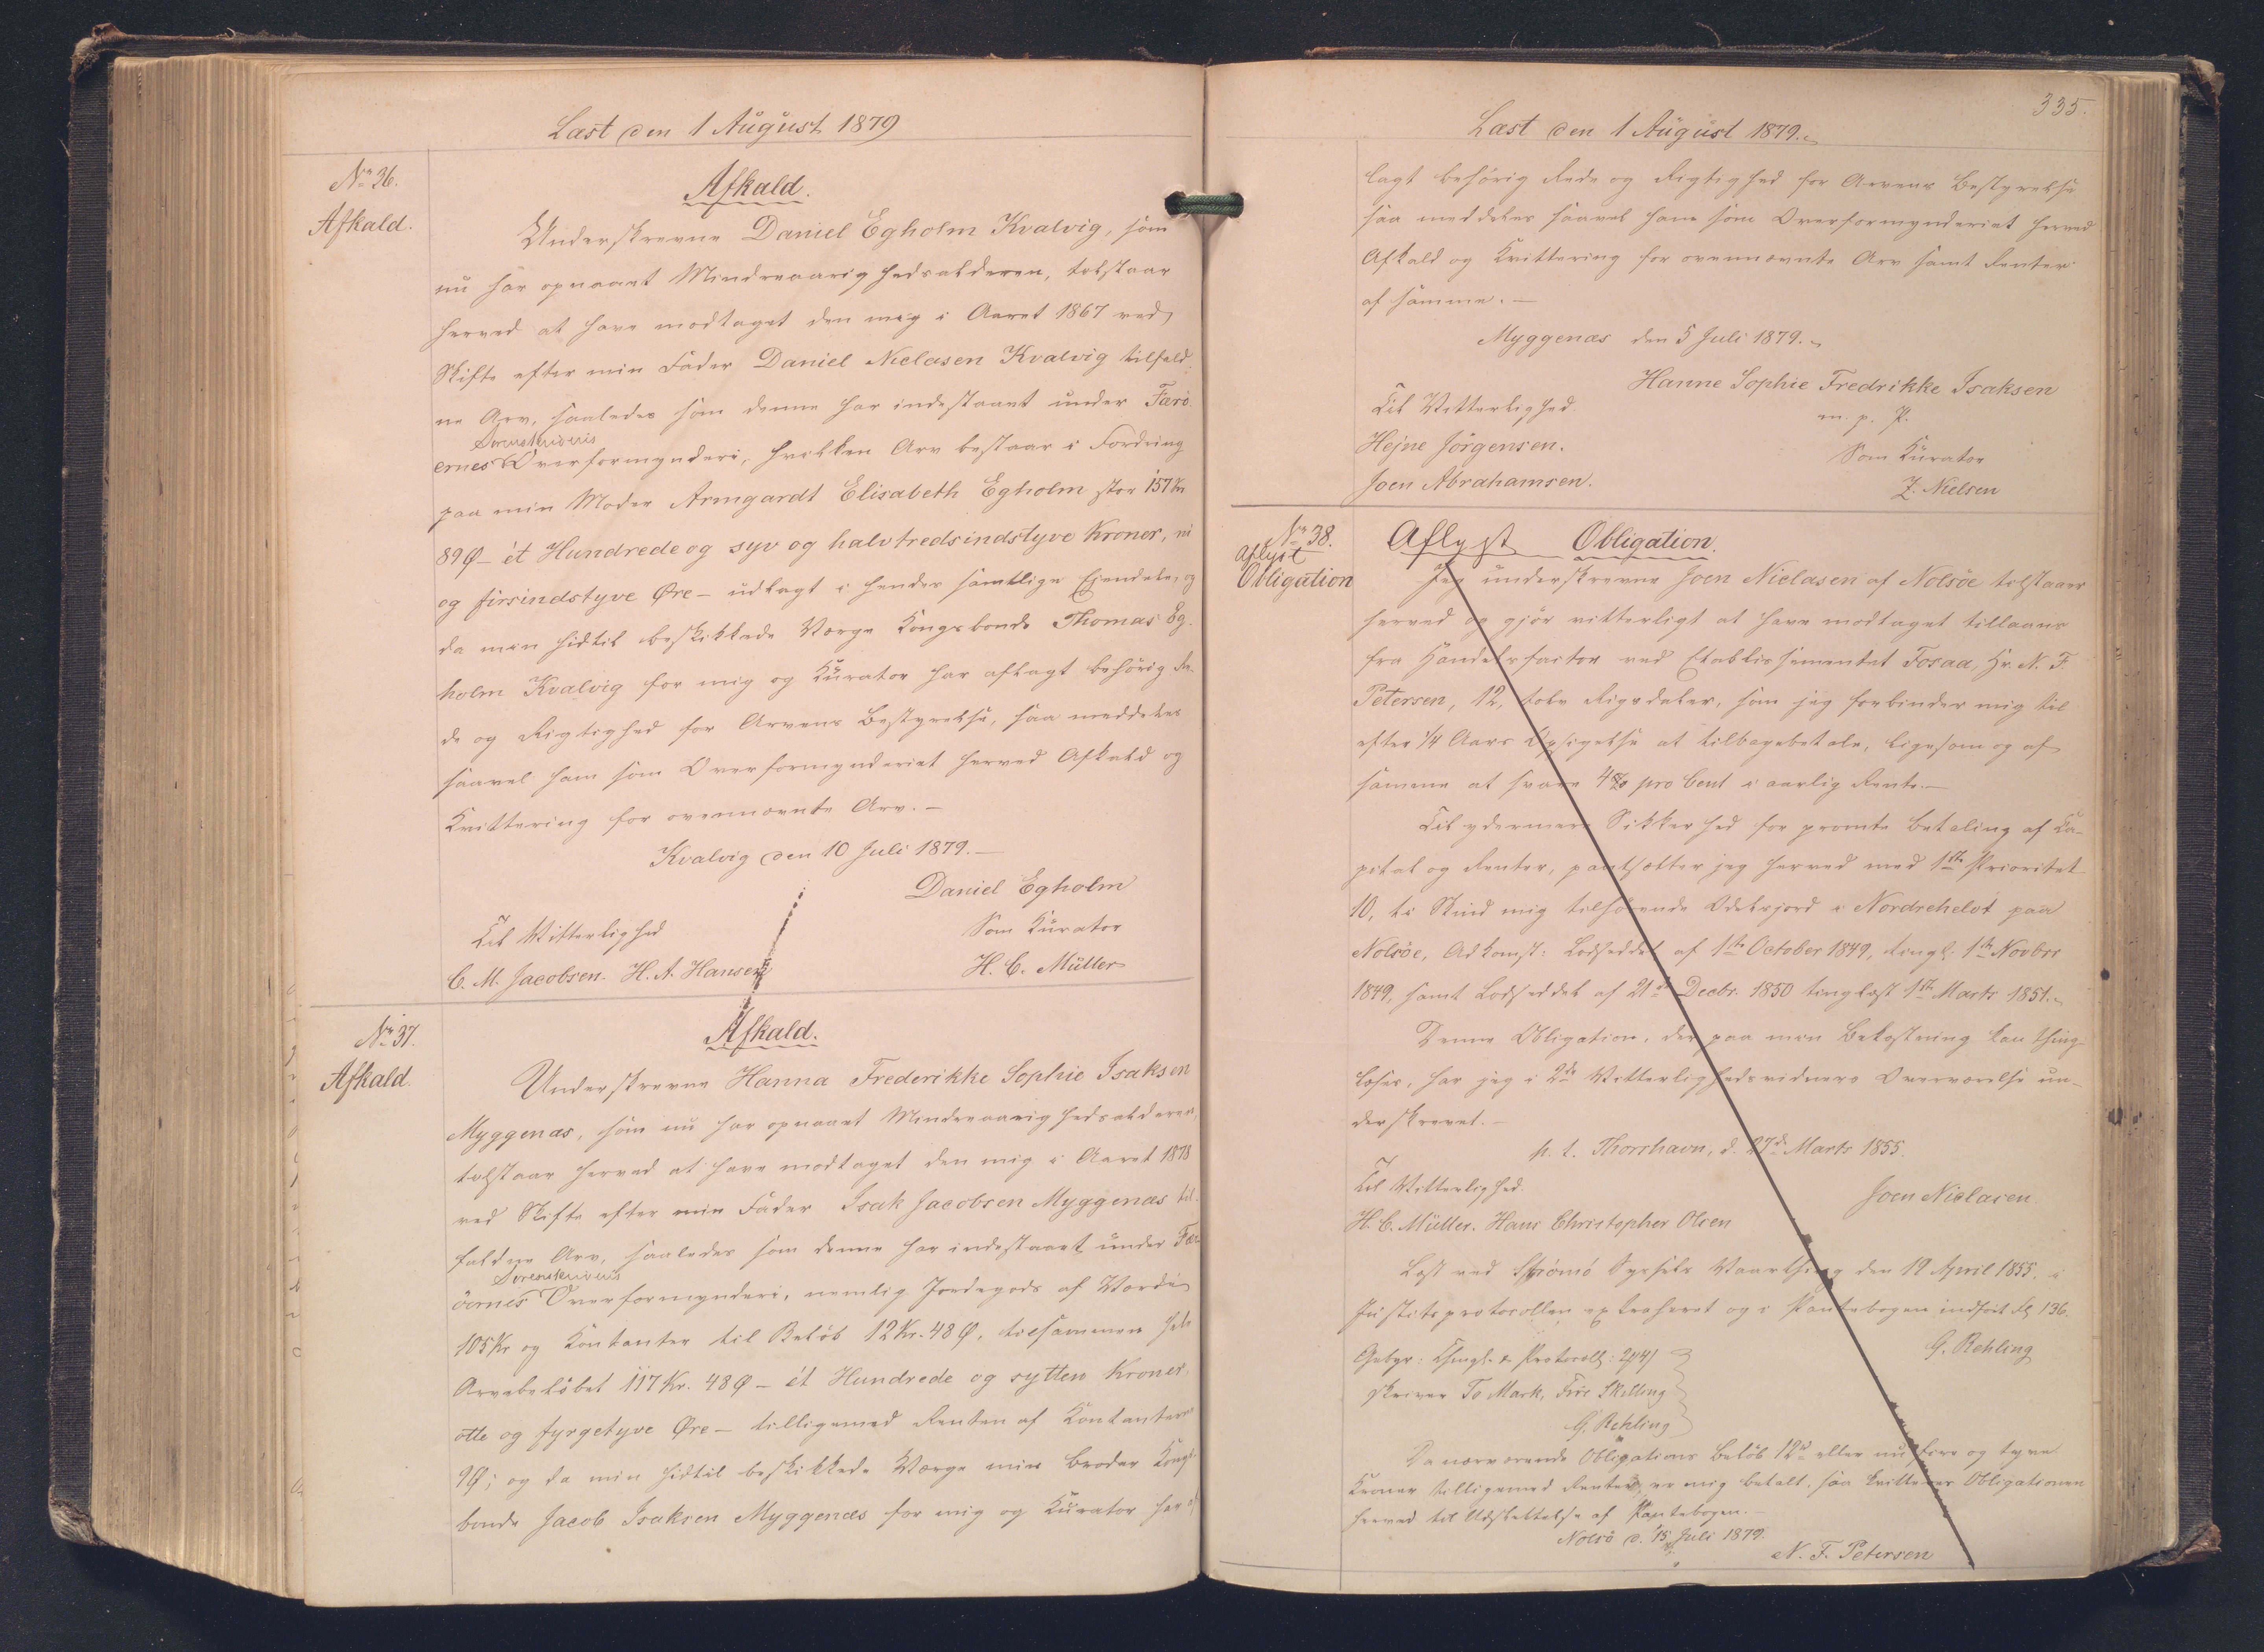 Læst den 1 August 1879
No 36.
Afkald.
Afkald.
Underskrevne Daniel Egholm Kvalvig, som
nu har opnaaet Mindreaarighedsalderen, tilstaar
herved at have modtaget den mig i Aaret 1867 ved
Skifte efter min Fader Daniel Niclasen Kvalvig tilfald-
ne Arv, saaledes som denne har indestaaet under Færö
Sorenskriveris
ernes Overformynderi, hvilken Arv bestaar i Fordring
paa min Moder Armgardt Elisabeth Egholm stor 157 Kr
89 Ø – ét Hundrede og syv og halvtredsindstyve Kroner, ni
og firsindstyve Øre – udlagt i hendes samtlige Ejendele, og
da min hidtil beskikkede Værge Kongsbonde Thomas Eg-
holm Kvalvig for mig og Kurator har aflagt behörig Re-
de og Rigtighed for Arvens Bestyrelse, saa meddeles
saavel ham som Overformynderiet herved Afkald og
Kvittering for ovennævnte Arv. –
Kvalvig den 10 Juli 1879. –
Daniel Egholm
Til Vitterlighed
Som Kurator
C. M. Jacobsen. H. A. Hansen
H. C. Müller
No 37.
Afkald.
Afkald.
Underskrevne Hanna Frederikke Sophie Isaksen
Myggenæs, som nu har opnaaet Mindreaarighedsalderen,
tilstaar herved at have modtaget den mig i Aaret 1878
ved Skifte efter min Fader Isak Jacobsen Myggenæs til-
faldne Arv, saaledes som denne har indestaaet under Fær
Sorenskriveris
öernes Overformynderi, nemlig Jordegods af Værdi
105 Kr og Kontanter til Belöb 12 Kr. 48 Ø, tilsammen hele
Arvebelöbet 117 Kr. 48 Ø – ét Hundrede og sytten Kroner,
otte og fyrgetyve Øre – tilligemed Renten af Kontanterne
9 Ø; og da min hidtil beskikkede Værge min Broder Kongs-
bonde Jacob Isaksen Myggenæs for mig og Kurator har af
335.
Læst den 1 August 1879.
lagt behörig Rede og Rigtighed for Arvens Bestyrelse
saa meddeles saavel ham som Overformynderiet herved
Afkald og Kvittering for ovennævnte Arv samt Renter
af samme. –
Myggenæs den 5 Juli 1879.
Hanne Sophie Fredrikke Isaksen
Til Vitterlighed
m. p. P.
Hejne Jörgensen.
Som Kurator
Joen Abrahamsen.
Z. Nielsen
No 38.
Aflyst
Obligation
Aflyst Obligation.
Jeg underskrevne Joen Niclasen af Nolsöe tilstaaer
herved og gjör vitterligt at have modtaget tillaans
fra Handelsfactor ved Etablissementet Fosaa, Hr. N. F.
Petersen, 12, tolv Rigsdaler, som jeg forbinder mig til
efter 1/4 Aars Opsigelse at tilbagebetale, ligesom og af
samme at svare 4% pro Cent i aarlig Rente. –
Til ydermere Sikkerhed for promte Betaling af Ca-
pital og Renter, pantsætter jeg herved med 1ste Prioritet
10, ti Skind mig tilhörende Odelsjord i Nordrehelvt paa
Nolsöe, Adkomst: Lodseddel af 1ste October 1849, tingl. 1ste Novbr
1849, samt Lodseddel af 21de Decbr. 1850 tinglæst 1ste Marts 1851.
Denne Obligation, der paa min Bekostning kan thing-
læses, har jeg i 2de Vitterlighedsvidners Overværelse un-
derskrevet. –
p. t. Thorshavn, d. 27de Marts 1855.
Til Vitterlighed.
Joen Niclasen
H. C. Müller. Hans Christopher Olsen
Læst ved Strömö Syssels Vaarthing den 19 April 1855, i
Justitsprotocollen extraheret og i Pantebogen indfört Fol 136.
G. Rehling
Gebyr: Thingl. & Protocoll: 2 4
skriver To Mark, Fire Skilling
G. Rehling
Da nærværende Obligations Belöb 12 eller nu fire og tyve
Kroner tilligemed Renter, er mig betalt, saa kvitteres Obligationen
herved til Udslettelse af Pantebogen. –
Nolsö d. 15 Juli 1879.
N. F. Petersen